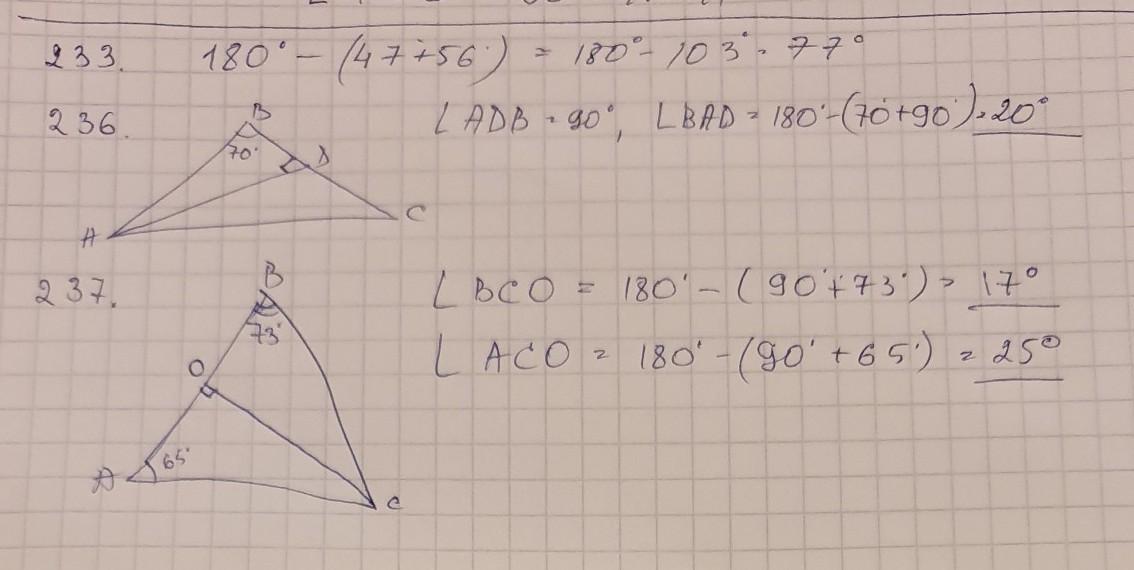 233. 180° - (47°+56°) = 180° - 103° = 77°
236. ∠ADB = 90°, ∠BAD = 180° - (70°+90°) = 20°
B
70°
D
A
C
237. ∠BCO = 180° - (90°+73°) = 17°
∠ACO = 180° - (90°+65°) = 25°
B
73°
O
A
65°
C